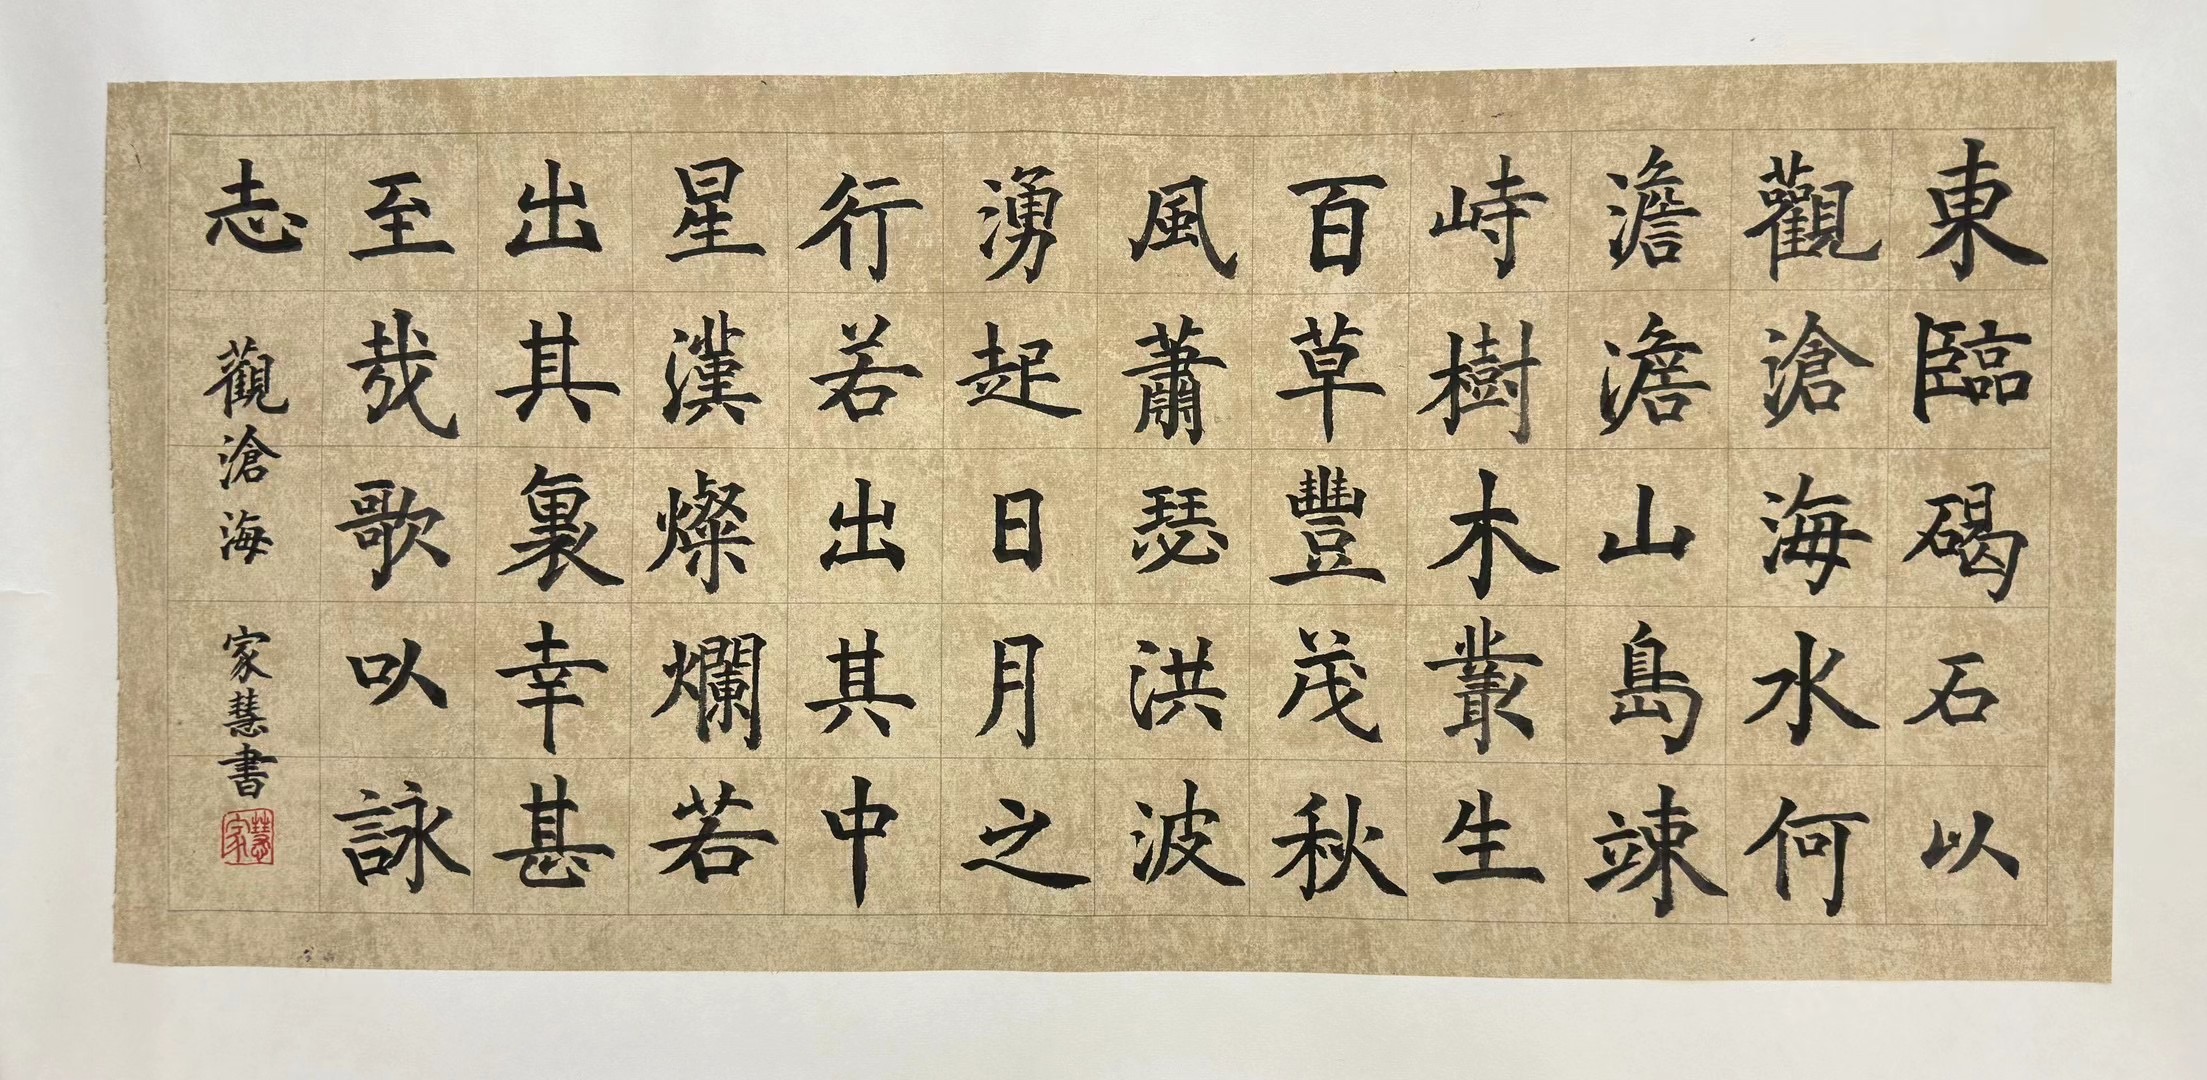 東臨碣石以
觀滄海水何
澹澹山島竦
峙樹木叢生
百草豐茂秋
風蕭瑟洪波
湧起日月之
行若出其中
星漢燦爛若
出其裏幸甚
至哉歌以詠
志
觀滄海
家慧書
家慧